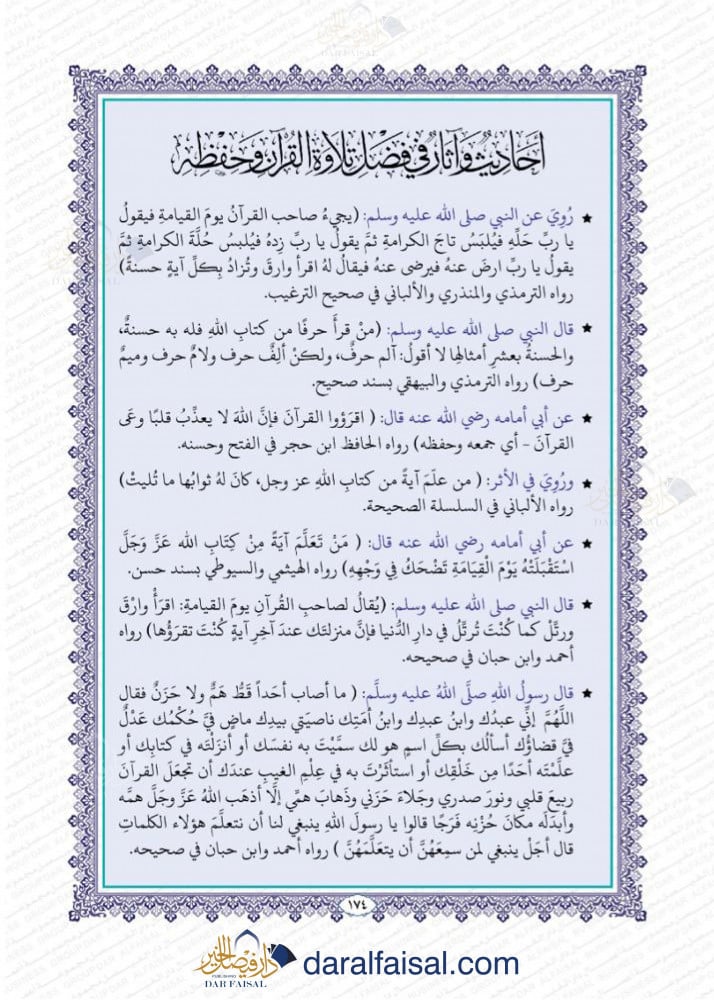 دار فيصل الخير
DAR FAISAL
أحاديث وآثار في فضل تلاوة القرآن وحفظه
★ رُوِيَ عن النبي صلى الله عليه وسلم: (يجيءُ صاحب القرآنُ يومَ القيامةِ فيقولُ
يا ربِّ حَلِّهِ فيُلبَسُ تاجَ الكرامةِ ثمَّ يقولُ يا ربِّ زِدهُ فيُلبسُ حُلَّةَ الكرامةِ ثمَّ
يقولُ يا ربِّ ارضَ عنهُ فيرضى عنهُ فيقالُ لهُ اقرأ وارقَ وتُزادُ بِكلِّ آيةٍ حسنةً)
رواه الترمذي والمنذري والألباني في صحيح الترغيب.
★ قال النبي صلى الله عليه وسلم: (منْ قرأَ حرفًا من كتابِ اللهِ فله به حسنةٌ،
والحسنةُ بعشرِ أمثالِها لا أقولُ: آلم حرفٌ، ولكنْ ألِفٌ حرف ولامٌ حرف وميمٌ
حرف) رواه الترمذي والبيهقي بسند صحيح.
★ عن أبي أمامه رضي الله عنه قال: ( اقرَؤوا القرآنَ فإنَّ اللهَ لا يعذِّبُ قلبًا وعَى
القرآنَ - أي جمعه وحفظه) رواه الحافظ ابن حجر في الفتح وحسنه.
★ ورُوِيَ في الأثر: ( من علّمَ آيةً من كتابِ اللهِ عز وجل، كانَ لهُ ثوابُها ما تُليتْ)
رواه الألباني في السلسلة الصحيحة.
★ عن أبي أمامه رضي الله عنه قال: ( مَنْ تَعَلَّمَ آيَةً مِنْ كِتَابِ الله عَزَّ وَجَلَّ
اسْتَقْبَلَتْهُ يَوْمَ الْقِيَامَةِ تَضْحَكُ فِي وَجْهِهِ) رواه الهيثمي والسيوطي بسند حسن.
★ قال النبي صلى الله عليه وسلم: (يُقالُ لصاحبِ القُرآنِ يومَ القيامةِ: اقرَأْ وارْقَ
ورتِّلْ كما كُنْتَ تُرتِّلُ في دارِ الدُّنيا فإنَّ منزلتَك عندَ آخِرِ آيةٍ كُنْتَ تقرَؤُها) رواه
أحمد وابن حبان في صحيحه.
★ قال رسولُ اللهِ صلَّى اللهُ عليه وسلَّم: ( ما أصاب أحَداً قَطُّ هَمٌّ ولا حَزَنٌ فقال
اللَّهُمَّ إنِّي عبدُك وابنُ عبدِك وابنُ أمَتِك ناصيَتي بيدِك ماضٍ فيَّ حُكْمُك عَدْلٌ
فيَّ قضاؤُك أسألُك بكلِّ اسمٍ هو لك سمَّيْتَ به نفسَك أو أنزَلْتَه في كتابِك أو
علَّمْتَه أحَدًا مِن خَلْقِك أو استأثَرْتَ به في عِلْمِ الغيبِ عندَك أن تجعَلَ القرآنَ
ربيعَ قلبي ونورَ صدري وجَلاءَ حَزَني وذَهابَ همِّي إلَّا أذهَب اللهُ عَزَّ وجَلَّ همَّه
وأبدَلَه مكانَ حُزْنِه فَرَجًا قالوا يا رسولَ اللهِ ينبغي لنا أن نتعلَّمَ هؤلاء الكلماتِ
قال أجَلْ ينبغي لمن سمِعَهُنَّ أن يتعلَّمَهُنَّ ) رواه أحمد وابن حبان في صحيحه.
١٧٤
دار فيصل الخير
PUBLISHING
DAR FAISAL
daralfaisal.com